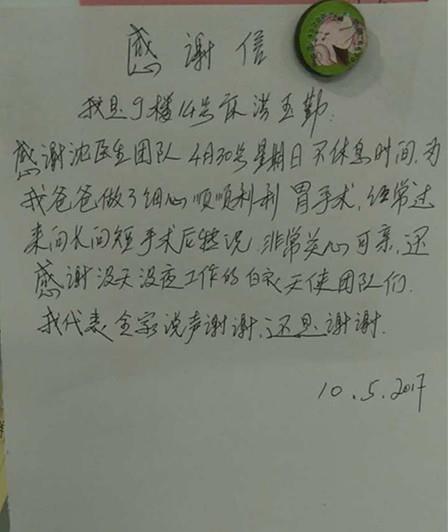 感谢信
我是9楼14号床洪玉勤:
感谢沈医生团队4月30号星期日不休息时间,为
我爸爸做了细心顺顺利利胃手术,经常过
来问长问短手术后情况,非常关心可亲,还
感谢没天没夜工作的白衣天使团队们.
我代表全家说声谢谢,还是谢谢.
10.5.2017